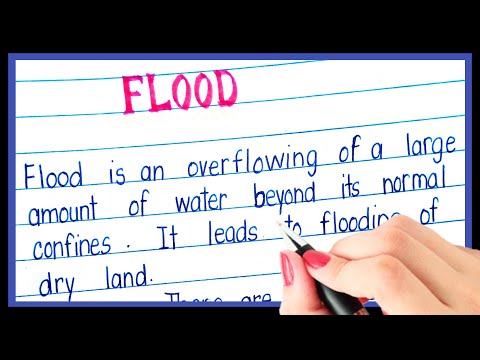 FLOOD
Flood is an overflowing of a large
amount of water beyond its normal
confines. It leads to flooding of
dry land.
There are